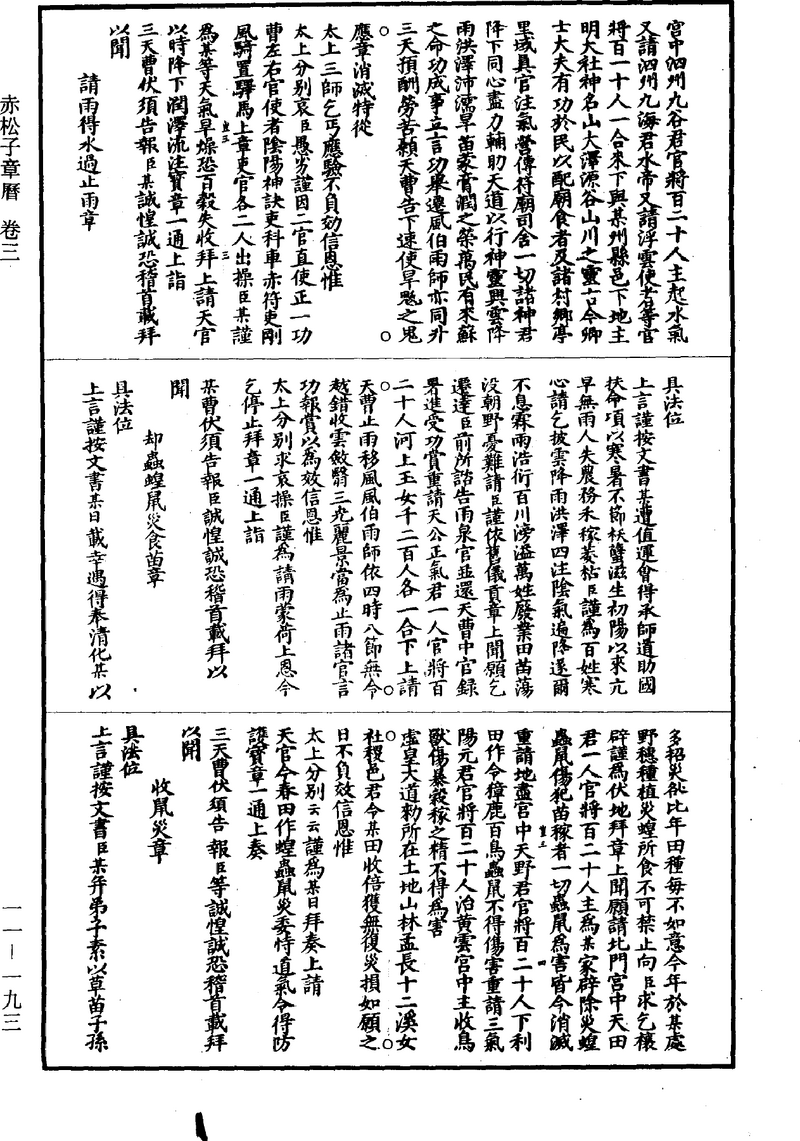 宮中泗州九谷君官將百二十人主起水氣
又請泗州九海君水帝又請浮雲使者等官
將百一十人一合來下與某州縣邑下地主
明大社神名山大澤源谷山川之靈古今卿
士大夫有功於民以配廟食者及諸村鄉亭
里域真官注氣營傳符廟司舍一切諸神君
降下同心盡力輔助天道以行神靈興雲降
雨洪澤沛濡旱苗蒙膏潤之榮萬民有來蘇
之命功成事立言功舉遷風伯雨師亦同升
三天預酬勞苦願天曹告下速使旱魃之鬼
應章消滅特從
太上三師乞丐應驗不負効信恩惟
太上分別哀臣愚劣謹因二官直使正一功
曹左右官使者陰陽神訣吏科車赤符吏剛
風騎置驛馬上章吏官各二人出操臣某謹
為某等天氣旱燥恐百穀失收拜上請天官
以時降下潤澤流注寶章一通上詣
三天曹伏須告報臣某誠惶誠恐稽首載拜
以聞
請雨得水過止雨章
具法位
上言謹按文書某遭值運會得承師道助國
扶命項以寒暑不節妖孽滋生初陽以來亢
旱無雨人失農務禾稼萎枯臣謹為百姓寒
心請乞披雲降雨洪澤四注陰氣遍降遂爾
不息霖雨浩衍百川滂溢萬姓廢業田苗蕩
沒朝野憂難請臣謹依舊儀貢章上聞願乞
還達臣前所諮告雨泉官並還天曹中官錄
署進受功賞重請天公正氣君一人官將百
二十人河上玉女千二百人各一合下上請
天曹止雨移風風伯雨師依四時八節無令
越錯收雲斂翳三光麗景當為止雨諸官言
功報賞以為效信恩惟
太上分別求哀操臣謹為請雨蒙荷上恩今
乞停止拜章一通上詣
某曹伏須告報臣誠惶誠恐稽首載拜以
聞
却蟲蝗鼠災食苗章
具法位
上言謹按文書某日載幸遇得奉清化某以
多招災咎比年田種每不如意今年於某處
野穗種植災蝗所食不可禁止向臣求乞禳
辟謹為伏地拜章上聞願請北門宮中天田
君一人官將百二十人主為某家辟除災蝗
蟲鼠傷犯苗稼者一切蟲鼠為害皆令消滅
重請地盡宮中天野君官將百二十人下利
田作令麞鹿百鳥蟲鼠不得傷害重請三氣
陽元君官將百二十人治黃雲宮中主收鳥
獸傷暴穀稼之精不得為害
虛皇大道勑所在土地山林孟長十二溪女
社稷邑君令某田收倍獲無復災損如願之
日不負效信恩惟
太上分別云云謹為某日拜奏上請
天官今春田作蝗蟲鼠災委恃道氣令得防
護寶章一通上奏
三天曹伏須告報臣等誠惶誠恐稽首載拜
以聞
收鼠災章
具法位
上言謹按文書臣某年弟子素以草苗子孫
赤松子章曆　卷三
一一－一九三